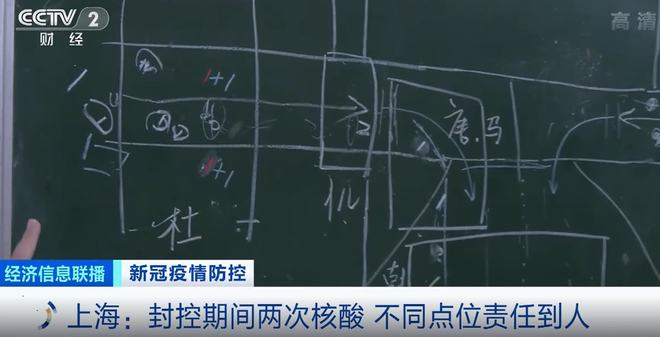 CCTV 2
财 经
高清
1+1
唐.马
1+1
杜
经济信息联播 新冠疫情防控
上海：封控期间两次核酸 不同点位责任到人